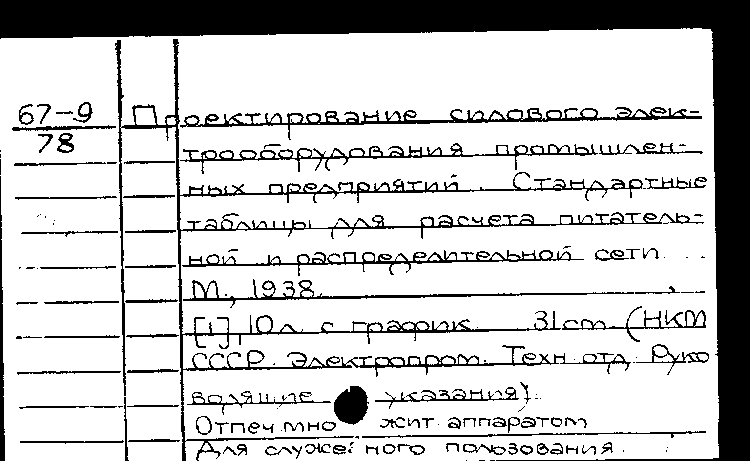 67-9
78
Проектирование силового элек-
трооборудования промышлен-
ных предприятий. Стандартные
таблицы для расчета питатель-
ной и распределительной сети...
М., 1938.
[1], 10л. с график. 31cm. (НКМ
СССР. Электропром. Техн. отд. Руко-
водящие указания).
Отпеч. мно жит. аппаратом
Для служе ного пользования.